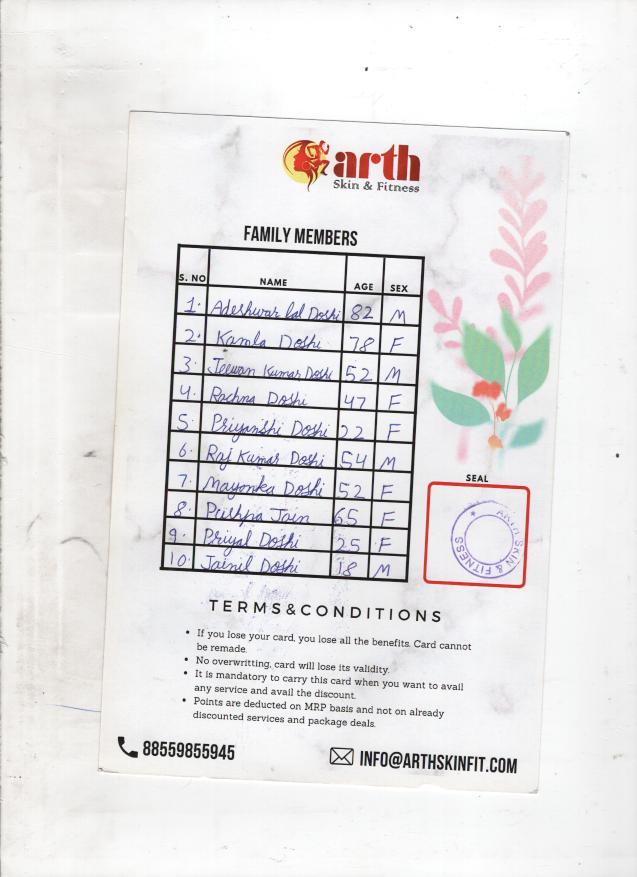 arth
Skin & Fitness
FAMILY MEMBERS
S. NO NAME AGE SEX
1. Adeshwar lal Doshi 82 M
2. Kamla Doshi 78 F
3. Jeewan Kumar Doshi 52 M
4. Rachna Doshi 47 F
5. Priyanshi Doshi 22 F
6. Raj Kumar Doshi 54 M
7. Mayanka Doshi 52 F
8. Pushpa Jain 65 F
9. Priyal Doshi 25 F
10. Jainil Doshi 18 M
SEAL
ARTH SKIN & FITNESS
TERMS&CONDITIONS
• If you lose your card, you lose all the benefits. Card cannot
be remade.
• No overwritting, card will lose its validity.
• It is mandatory to carry this card when you want to avail
any service and avail the discount.
• Points are deducted on MRP basis and not on already
discounted services and package deals.
88559855945
INFO@ARTHSKINFIT.COM